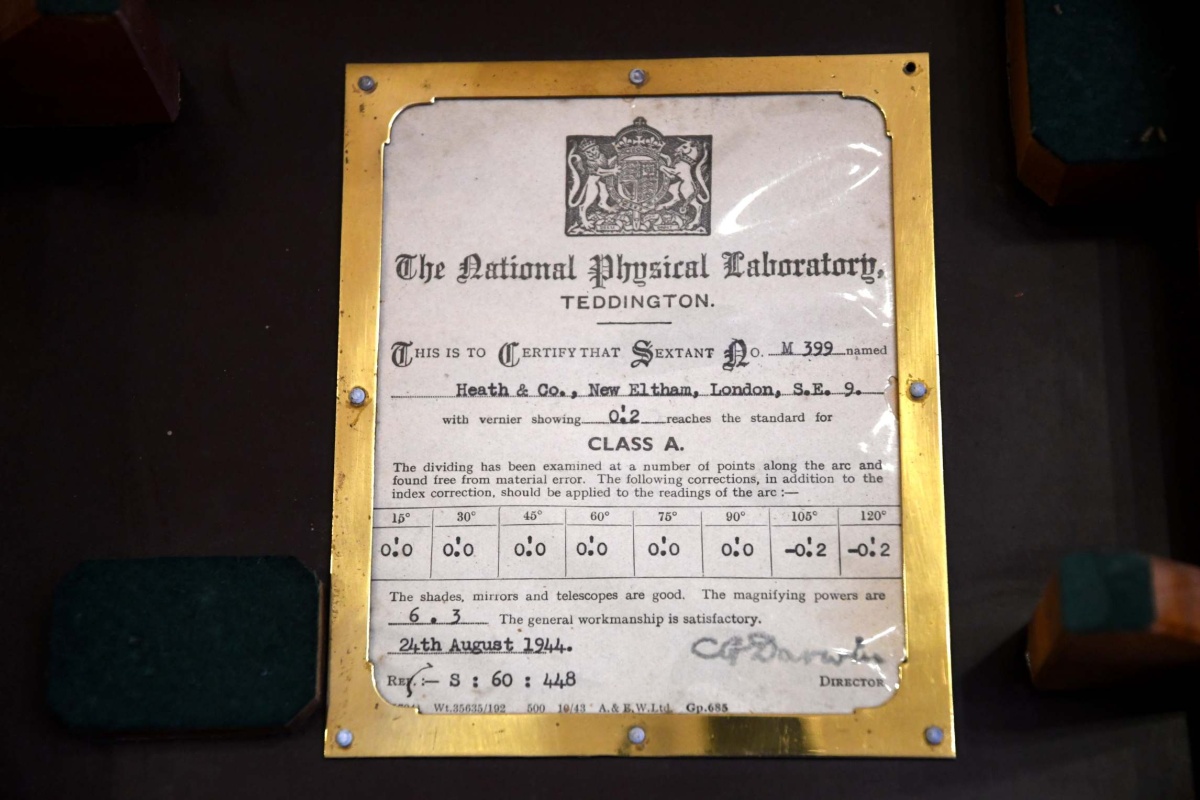 The National Physical Laboratory,
TEDDINGTON.
THIS IS TO CERTIFY THAT SEXTANT NO. M 399 named
Heath & Co., New Eltham, London, S.E. 9.
with vernier showing 0!2 reaches the standard for
CLASS A.
The dividing has been examined at a number of points along the arc and
found free from material error. The following corrections, in addition to the
index correction, should be applied to the readings of the arc :—
15° 30° 45° 60° 75° 90° 105° 120°
0!0 0!0 0!0 0!0 0!0 0!0 -0!2 -0!2
The shades, mirrors and telescopes are good. The magnifying powers are
6 . 3 The general workmanship is satisfactory.
24th August 1944.
CG Darwin
REF. :— S : 60 : 448 DIRECTOR
Wt.35635/192 500 10/43 A.& E.W.Ltd. Gp.685